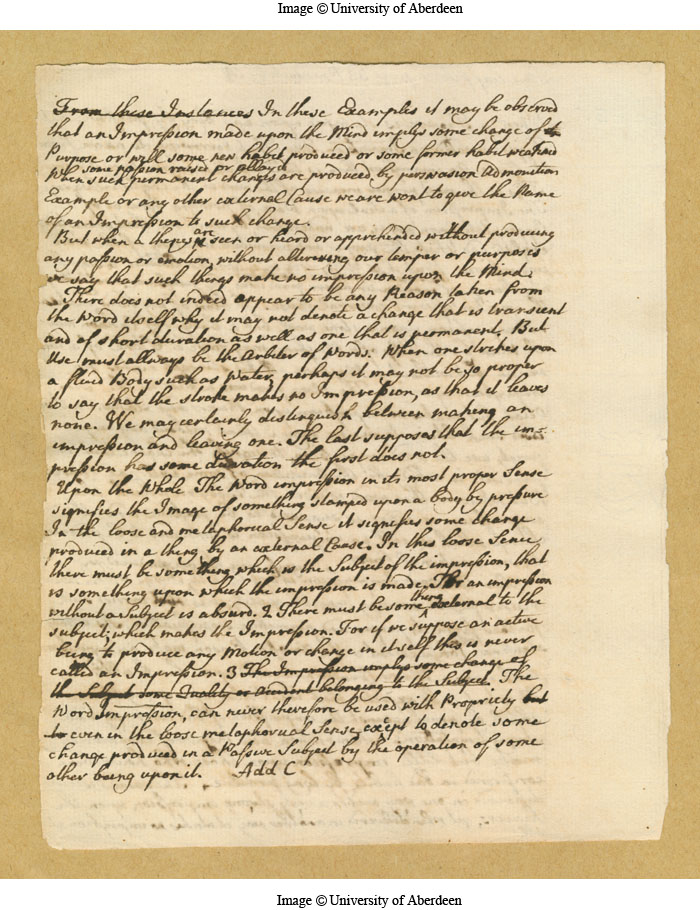 Image © University of Aberdeen
From these Instances In these Examples it may be observed
that an Impression made upon the Mind implys some change of
Purpose or will some new habit produced or some former habit weakned
some passion raised or allayed
When such permanent changes are produced by perswasion Admonition
Example or any other external Cause we are wont to give the Name
of an Impression to such change.
are
But when a things seen or heard or apprehended without producing
any passion or emotion, without altering our temper or purposes
we say that such things make no impression upon the Mind.
There does not indeed appear to be any Reason taken from
the Word itself why it may not denote a change that is transient
and of short duration as well as one that is permanent, But
Use must allways be the Arbiter of Words. When one strikes upon
a fluid Body such as Water, perhaps it may not be so proper
to say that the stroke makes no Impression, as that it leaves
none. We may certainly distinguish between making an
impression and leaving one. The last supposes that the im-
pression has some duration the first does not.
Upon the Whole The Word impression in its most proper Sense
signifies the Image of something stamped upon a body by pressure
In the loose and metaphorical Sense it signifies some change
produced in a thing by an external Cause. In this loose Sense
there must be something which is the Subject of the impression, that
is something upon which the impression is made, For an impression
thing
without a Subject is absurd. 2 There must be some external to the
subject; which makes the Impression. For if we suppose an active
being to produce any Motion or change in itself this is never
called an Impression. 3 The Impression implys some change of
the Subject some Quality or accident belonging to the Subject. The
Word Impression, can never therefore be used with Propriety but
to even in the loose metaphorical Sense, except to denote some
change produced in a Passive Subject by the operation of some
other being upon it. Add C
Image © University of Aberdeen